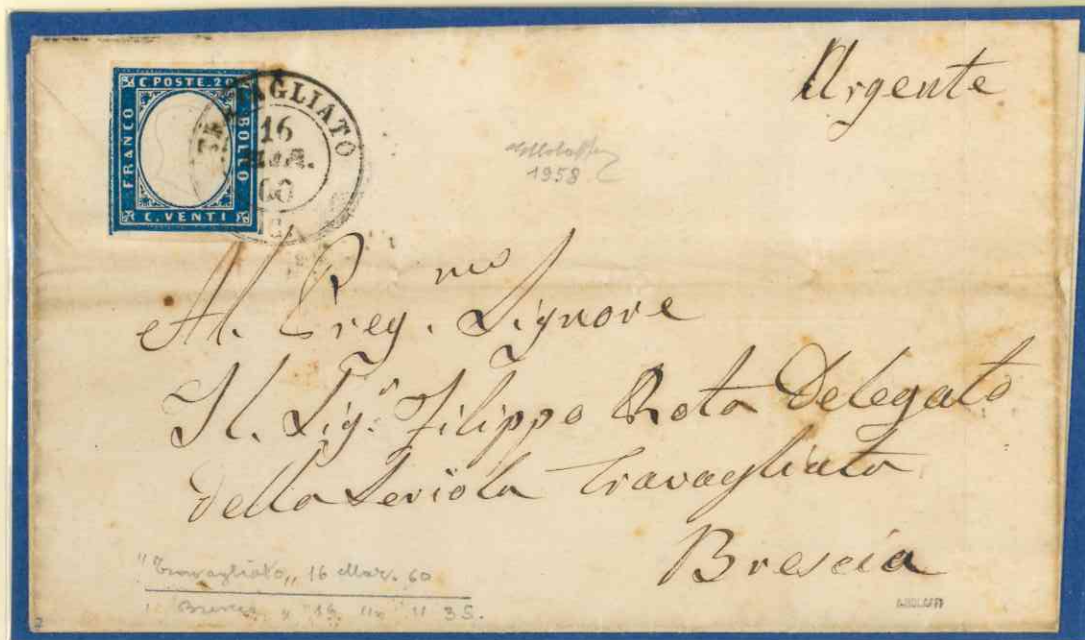 Urgente
C POSTE. 20
FRANCO
BOLLO
C. VENTI
TRAVAGLIATO
16
MAR.
60
1958
Al. Preg.mo Signore
Il. Sig.r Filippo Rota Delegato
della Seriola Travagliata
Brescia
"Travagliato„ 16 Mar. 60
Brescia